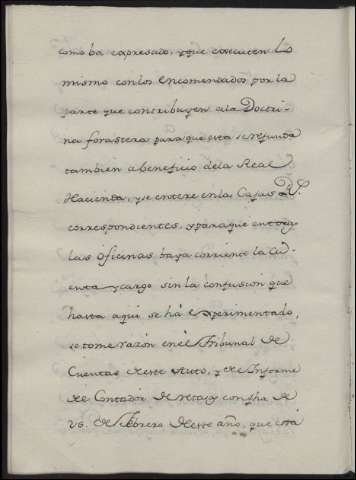 como ba expresado, y que executen lo
mismo con los encomendados por la
parte que contribuyen a la Doctri-
na forastera para que esta se refunda
tambien a beneficio dela Real
Hacienda, y se entere en las Cajas R.s
correspondientes, y para que en todas
las oficinas baya corriente la Cu-
enta y cargo sin la confusion que
hasta aqui se há experimentado,
se tome razón en él Tribunal de
Cuentas de este Auto, y de Informe
de Contador de retasas con fha de
26. de febrero de este año, que está